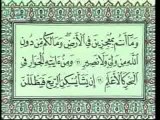 وَمَآ أَنتُم بِمُعْجِزِينَ فِي ٱلْأَرْضِ وَمَا لَكُم مِّن دُونِ
ٱللَّهِ مِن وَلِيٍّ وَلَا نَصِيرٍ وَمِنْ ءَايَٰتِهِ ٱلْجَوَارِ فِي
ٱلْبَحْرِ كَٱلْأَعْلَٰمِ إِن يَشَأْ يُسْكِنِ ٱلرِّيحَ فَيَظْلَلْنَ